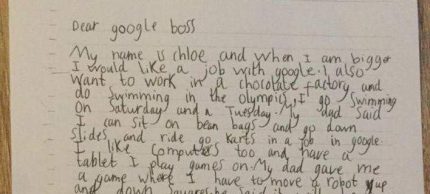 Dear google boss
My name is Chloe and when I am bigger
I would like a job with google. I also
want to work in a chocolate factory and
do swimming in the olympics, I go swimming
on Saturday and a Tuesday. My dad said
I can sit on bean bags and go down
slides and ride go karts in a job in google.
I like computers too and have a
tablet I play games on. My dad gave me
a game where I have to move a robot up
and down squares